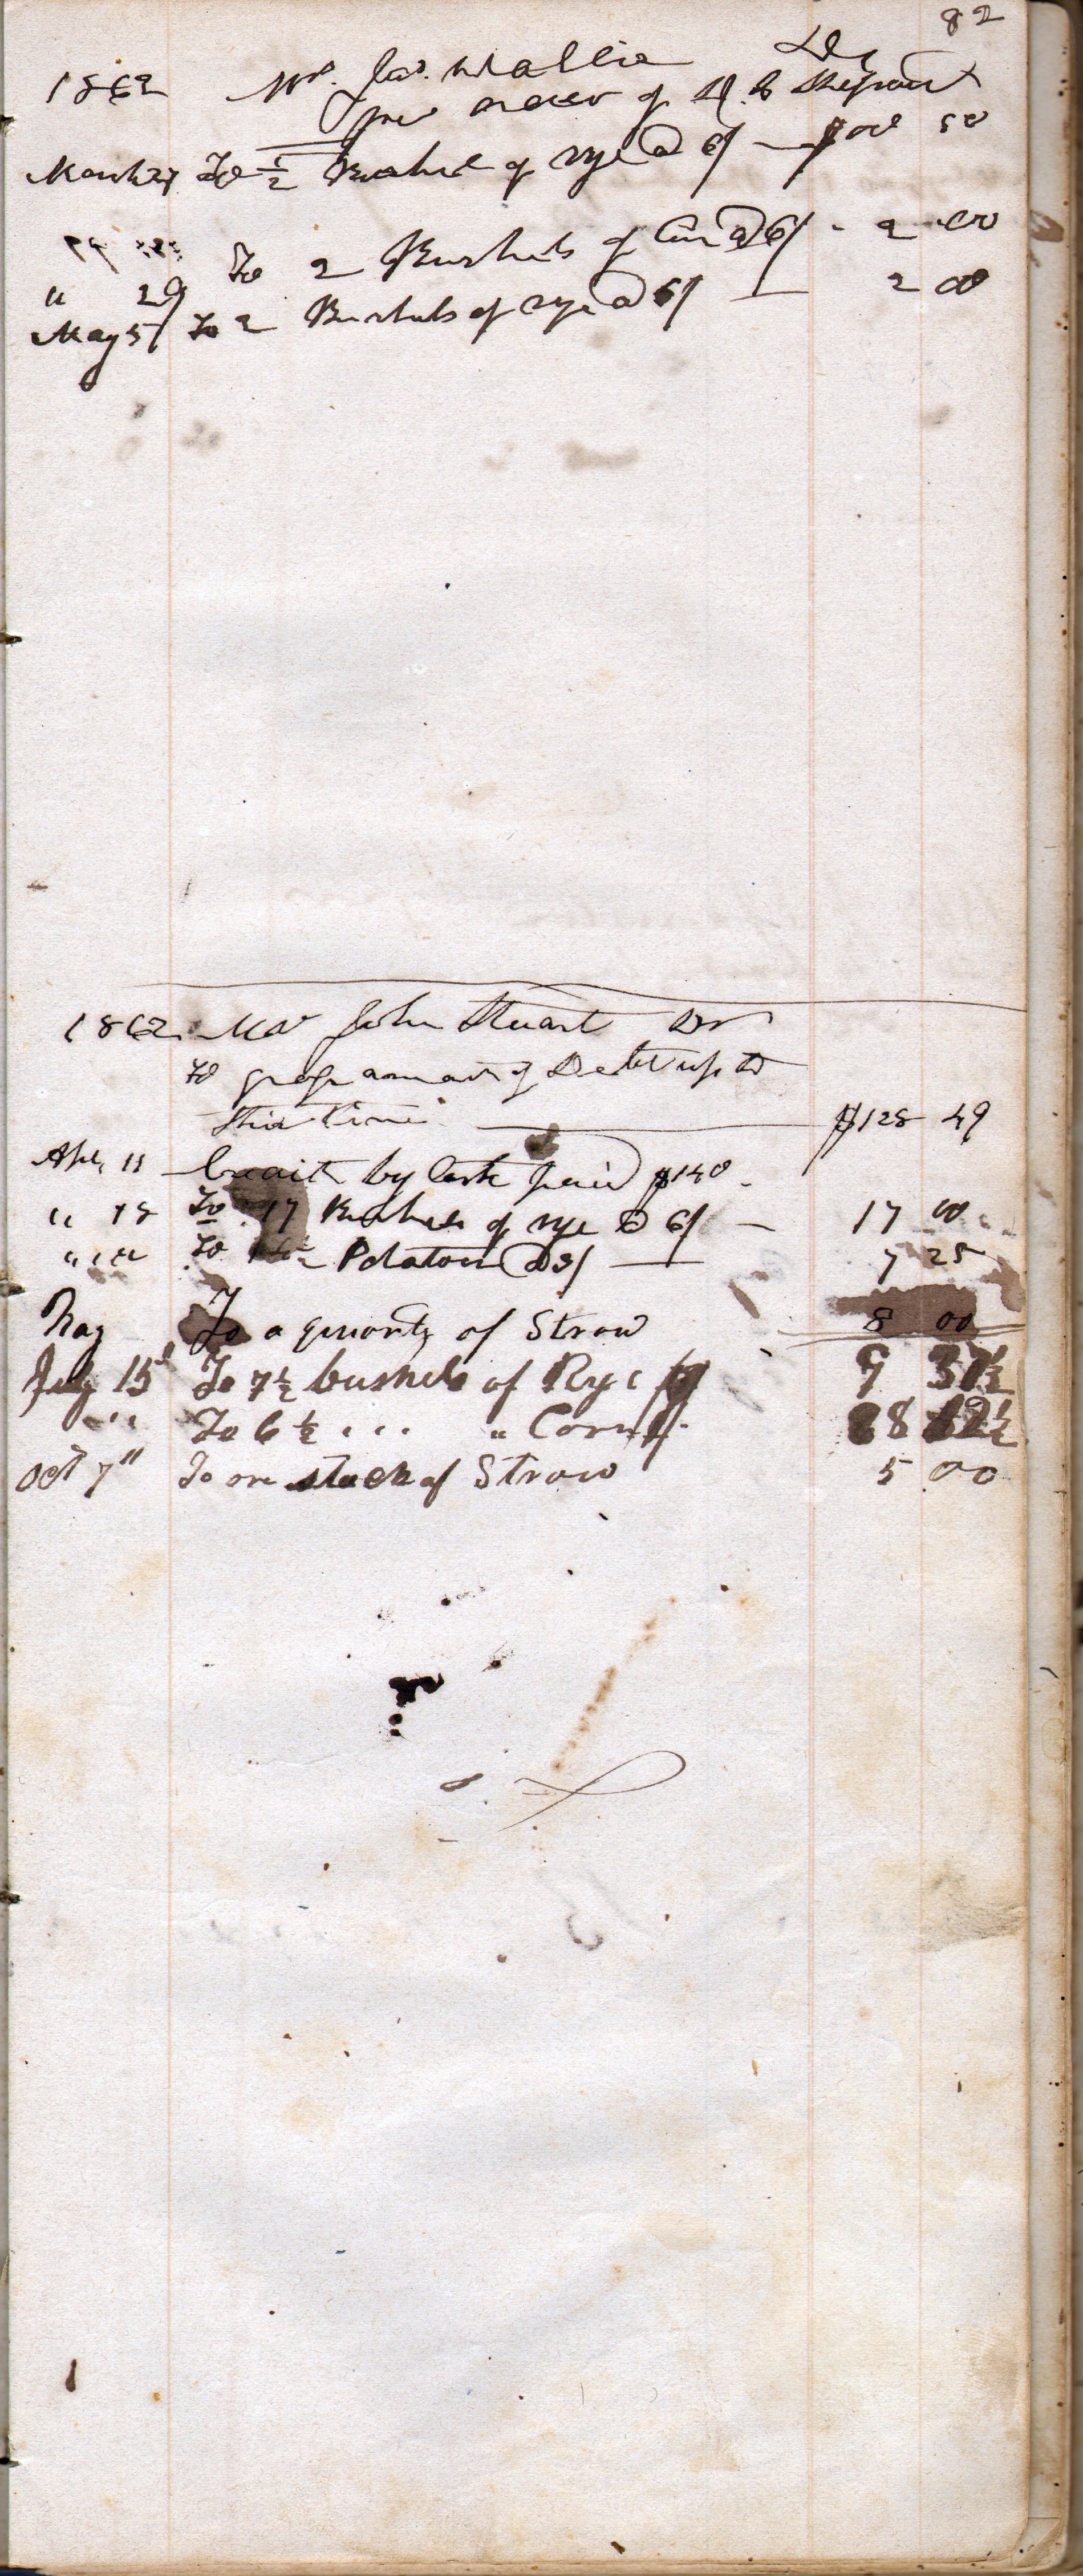 82
1862 Mr. Jas. Wallie Dr
per order of D. B.
March 27 To ½ Bushel of rye @ 6/ — $00 50
" 29 To 2 Bushels of Corn @ 6/ - 2 00
May 5 To 2 Bushels of rye @ 6/ — 2 00
1862. Mr John Stuart Dr
To amount of Debt up to
this time — $128 49
Apl, 11 Credit by Cash paid $140.
" 18 To 17 Bushels of rye @ 6/ — 17 00
" " To Potatoes @ 3/ — 7 25
May To a quantity of Straw 8 00
July 15 To 7½ bushels of Rye 9 37½
" To 6½ " " Corn 8 12½
Oct 7" To one stack of Straw 5 00